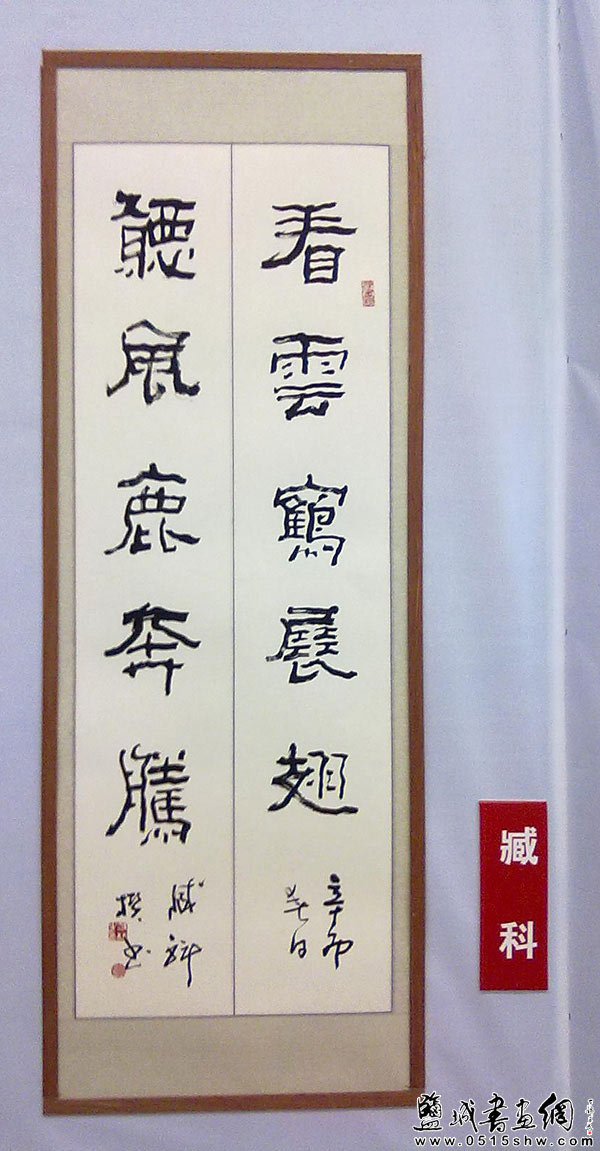 看雲鶴展翅
辛卯
春日
聽風鹿奔騰
臧科
撰书
臧科
鹽城書画網
www.0515shw.com